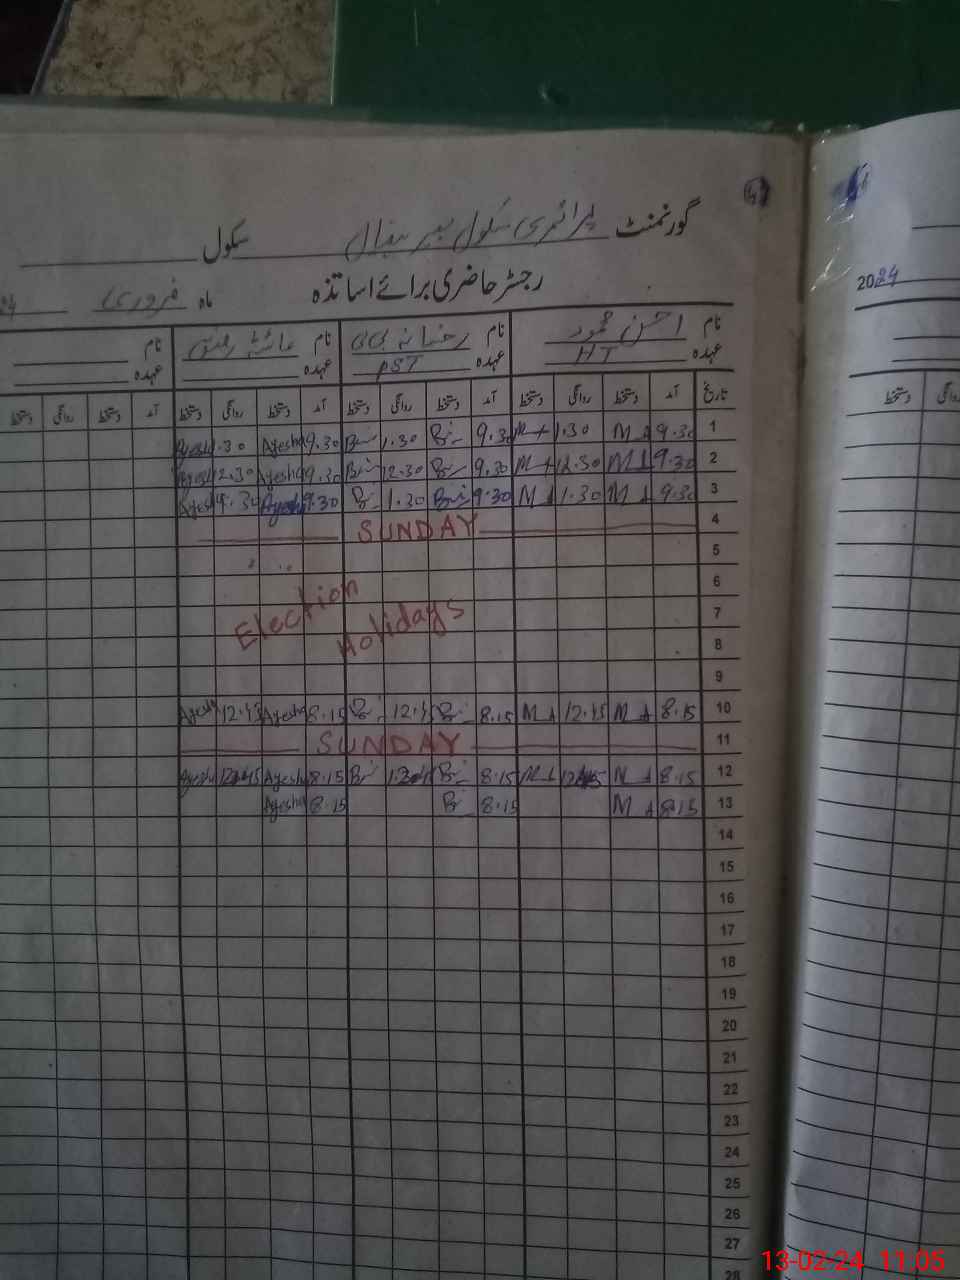 گورنمنٹ پرائمری سکول سکول
رجسٹر حاضری برائے اساتذہ ماہ فروری 24
2024
نام احسن محمود نام رخسانہ بی بی نام عائشہ رفیق نام
عہدہ HT عہدہ PST عہدہ عہدہ
تاریخ آمد دستخط روانگی دستخط آمد دستخط روانگی دستخط آمد دستخط روانگی دستخط آمد دستخط روانگی دستخط
1 9.30 MA 1.30 MA 9.30 Bi 1.30 Bi 9.30 Ayesha 1.30 Ayesha
2 9.30 MA 12.30 MA 9.30 Bi 12.30 Bi 9.30 Ayesha 12.30 Ayesha
3 9.30 MA 1.30 MA 9.30 Bi 1.30 Bi 9.30 Ayesha 1.30 Ayesha
4 SUNDAY
5
6 Election
7 Holidays
8
9
10 8.15 MA 12.45 MA 8.15 Bi 12.45 Bi 8.15 Ayesha 12.45 Ayesha
11 SUNDAY
12 8.15 MA 12.45 MA 8.15 Bi Bi 8.15 Ayesha 12.45 Ayesha
13 8.15 MA 8.15 Bi 8.15 Ayesha
14
15
16
17
18
19
20
21
22
23
24
25
26
27
28
13-02-24 11:05